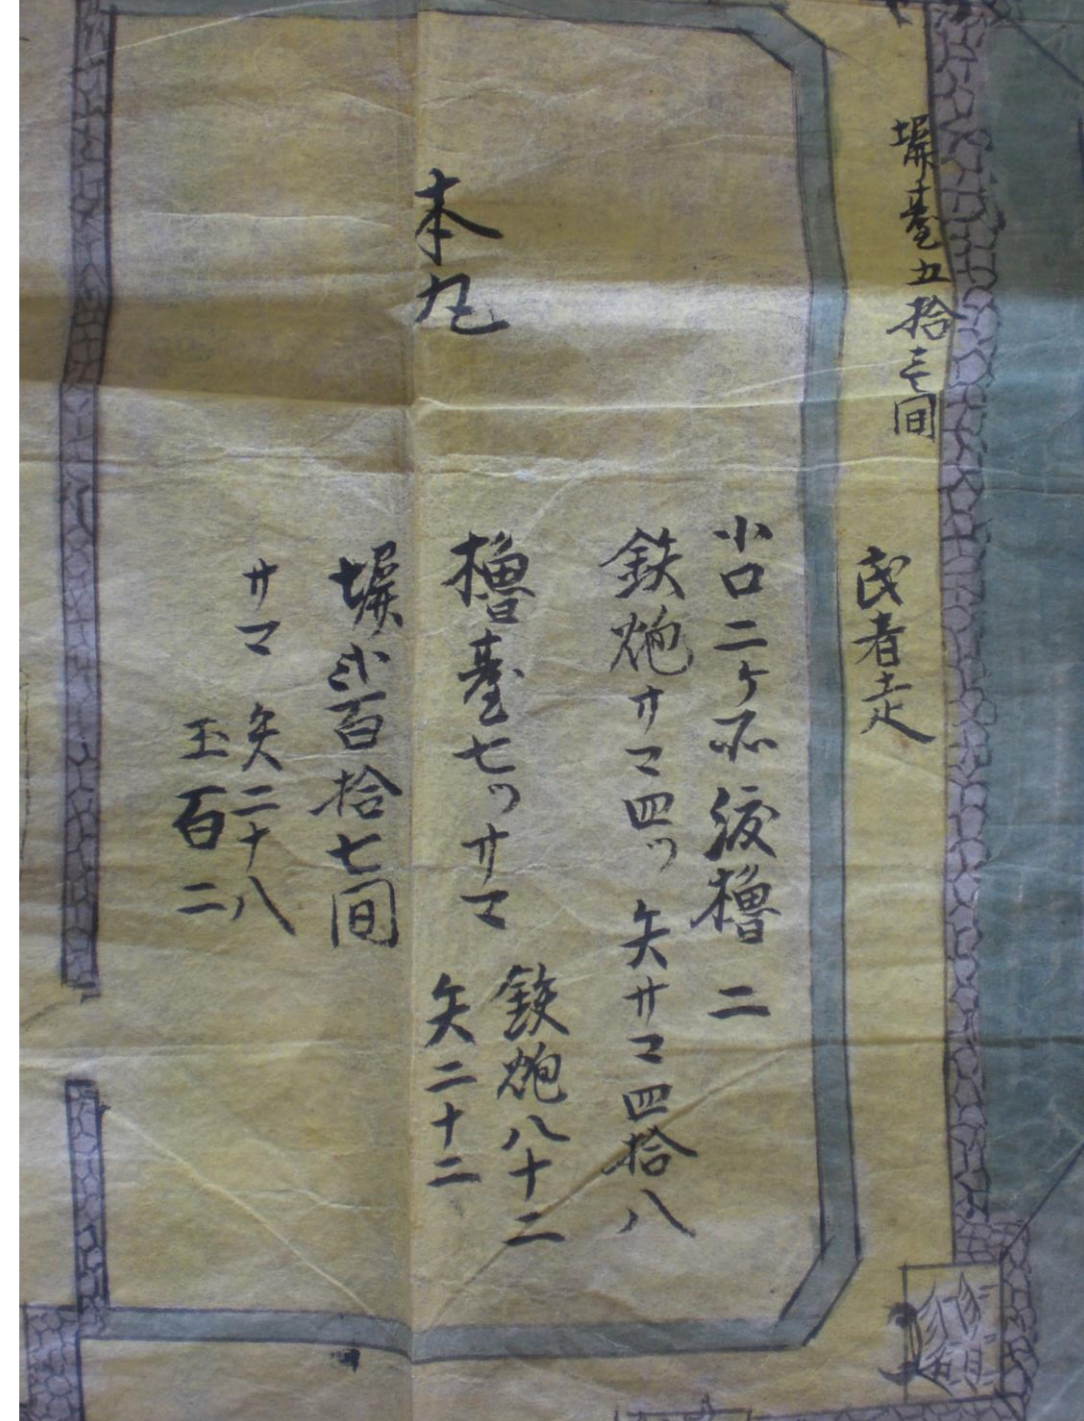 塀臺五拾三間
武者走
小口二ヶ所渡櫓二
鉄炮サマ四ッ矢サマ四拾八
本丸
櫓臺七ッサマ
鉄炮八十二
矢二十二
塀弐百拾七間
サマ矢二十八
玉百二